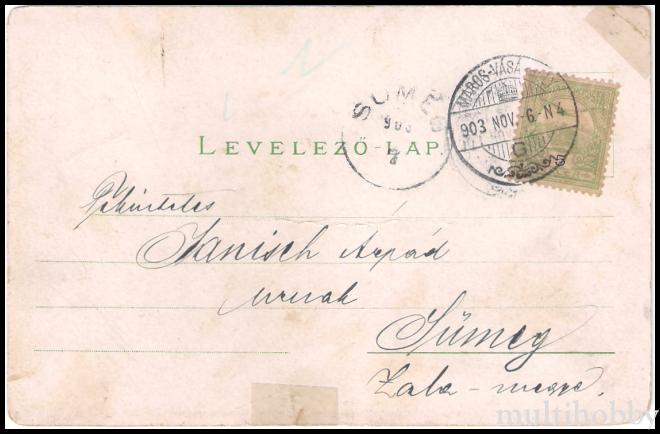 SÜMEG
903
7
MAROS-VÁSÁ
903 NOV.-6.-N4
G
LEVELEZŐ-LAP
Tekintetes
Janisch Árpád
urnak
Sümeg
Zala-megye.
multihobby